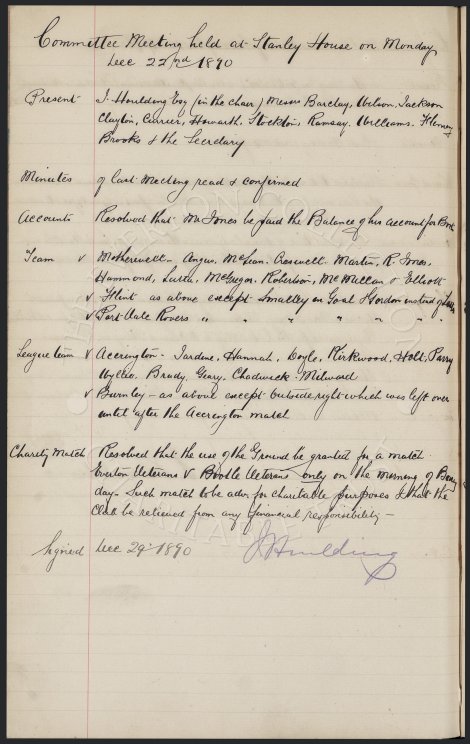 Committee Meeting held at Stanley House on Monday
Dec 22nd 1890
Present J. Houlding Esq (in the chair) Messrs Barclay, Wilson, Jackson
Clayton, Currier, Howarth, Stockton, Ramsay, Williams, Fleming
Brooks & the Secretary
Minutes of last Meeting read & confirmed
Accounts Resolved that Mr Jones be paid the Balance of his account for
Team v Motherwell - Angus, McLean, Cresswell, Martin, R. Jones,
Hammond, McGregor, Robertson, McMillan & Elliott
v Flint as above except Smalley in Goal & Gordon instead of
v Port Vale Rovers " " " " " "
League team v Accrington - Jardine, Hannah, Doyle, Kirkwood, Holt, Parry
Wyllie, Brady, Geary, Chadwick - Milward
v Burnley - as above except outside right which was left over
until after the Accrington match
Charity Match Resolved that the use of the Ground be granted for a match
Everton Veterans v Bootle Veterans only on the morning of
day - Such match to be adv. for charitable purposes & that the
Club be relieved from any financial responsibility -
Signed Dec 29. 1890 J Houlding